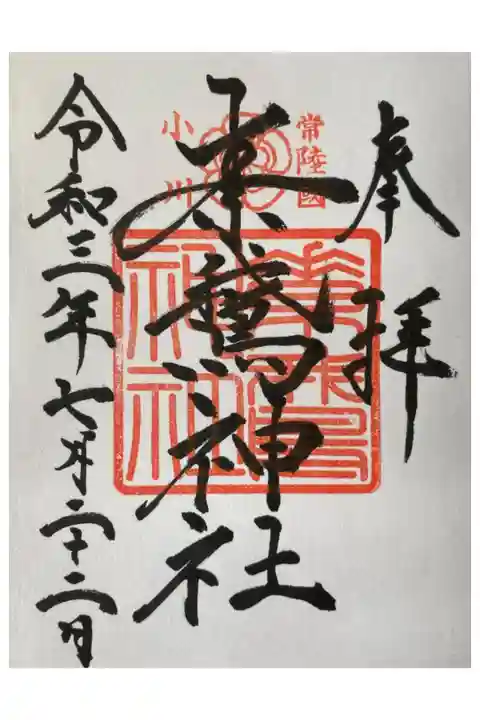 奉拝
常陸國
小川
素鵞神社
素鵞
神社
令和三年七月二十二日